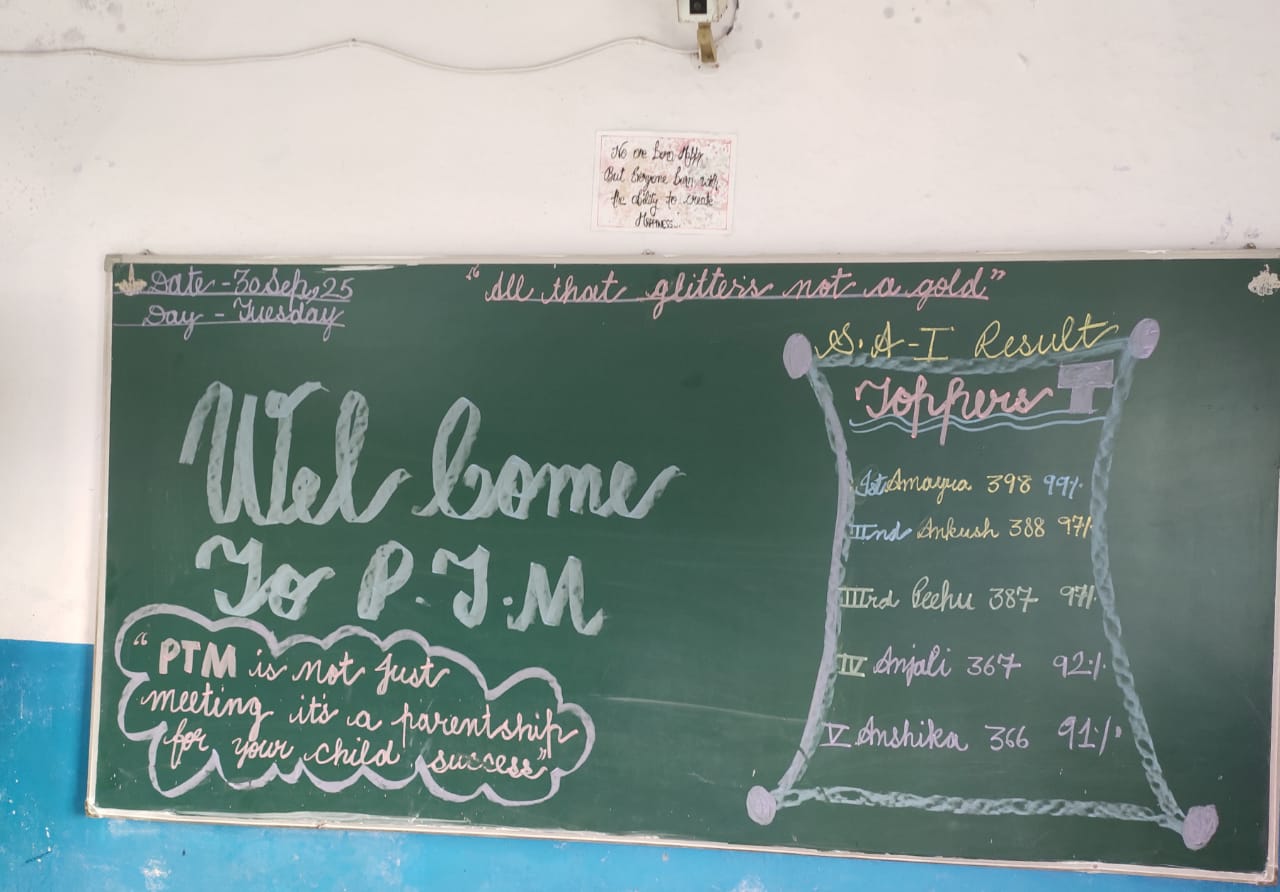 No one born Happy
But Everyone born with
the ability to create
HAPPINESS
Date - 30 Sep, 25
Day - Tuesday
"All that glitters not a gold"
Wel Come
To P.T.M
"PTM is not just
meeting it's a parentship
for your child success"
S.A-I Result
Toppers
Ist Amayra 398 99%
IInd Ankush 388 97%
IIIrd Peehu 387 97%
IV Anjali 367 92%
V Anshika 366 91%